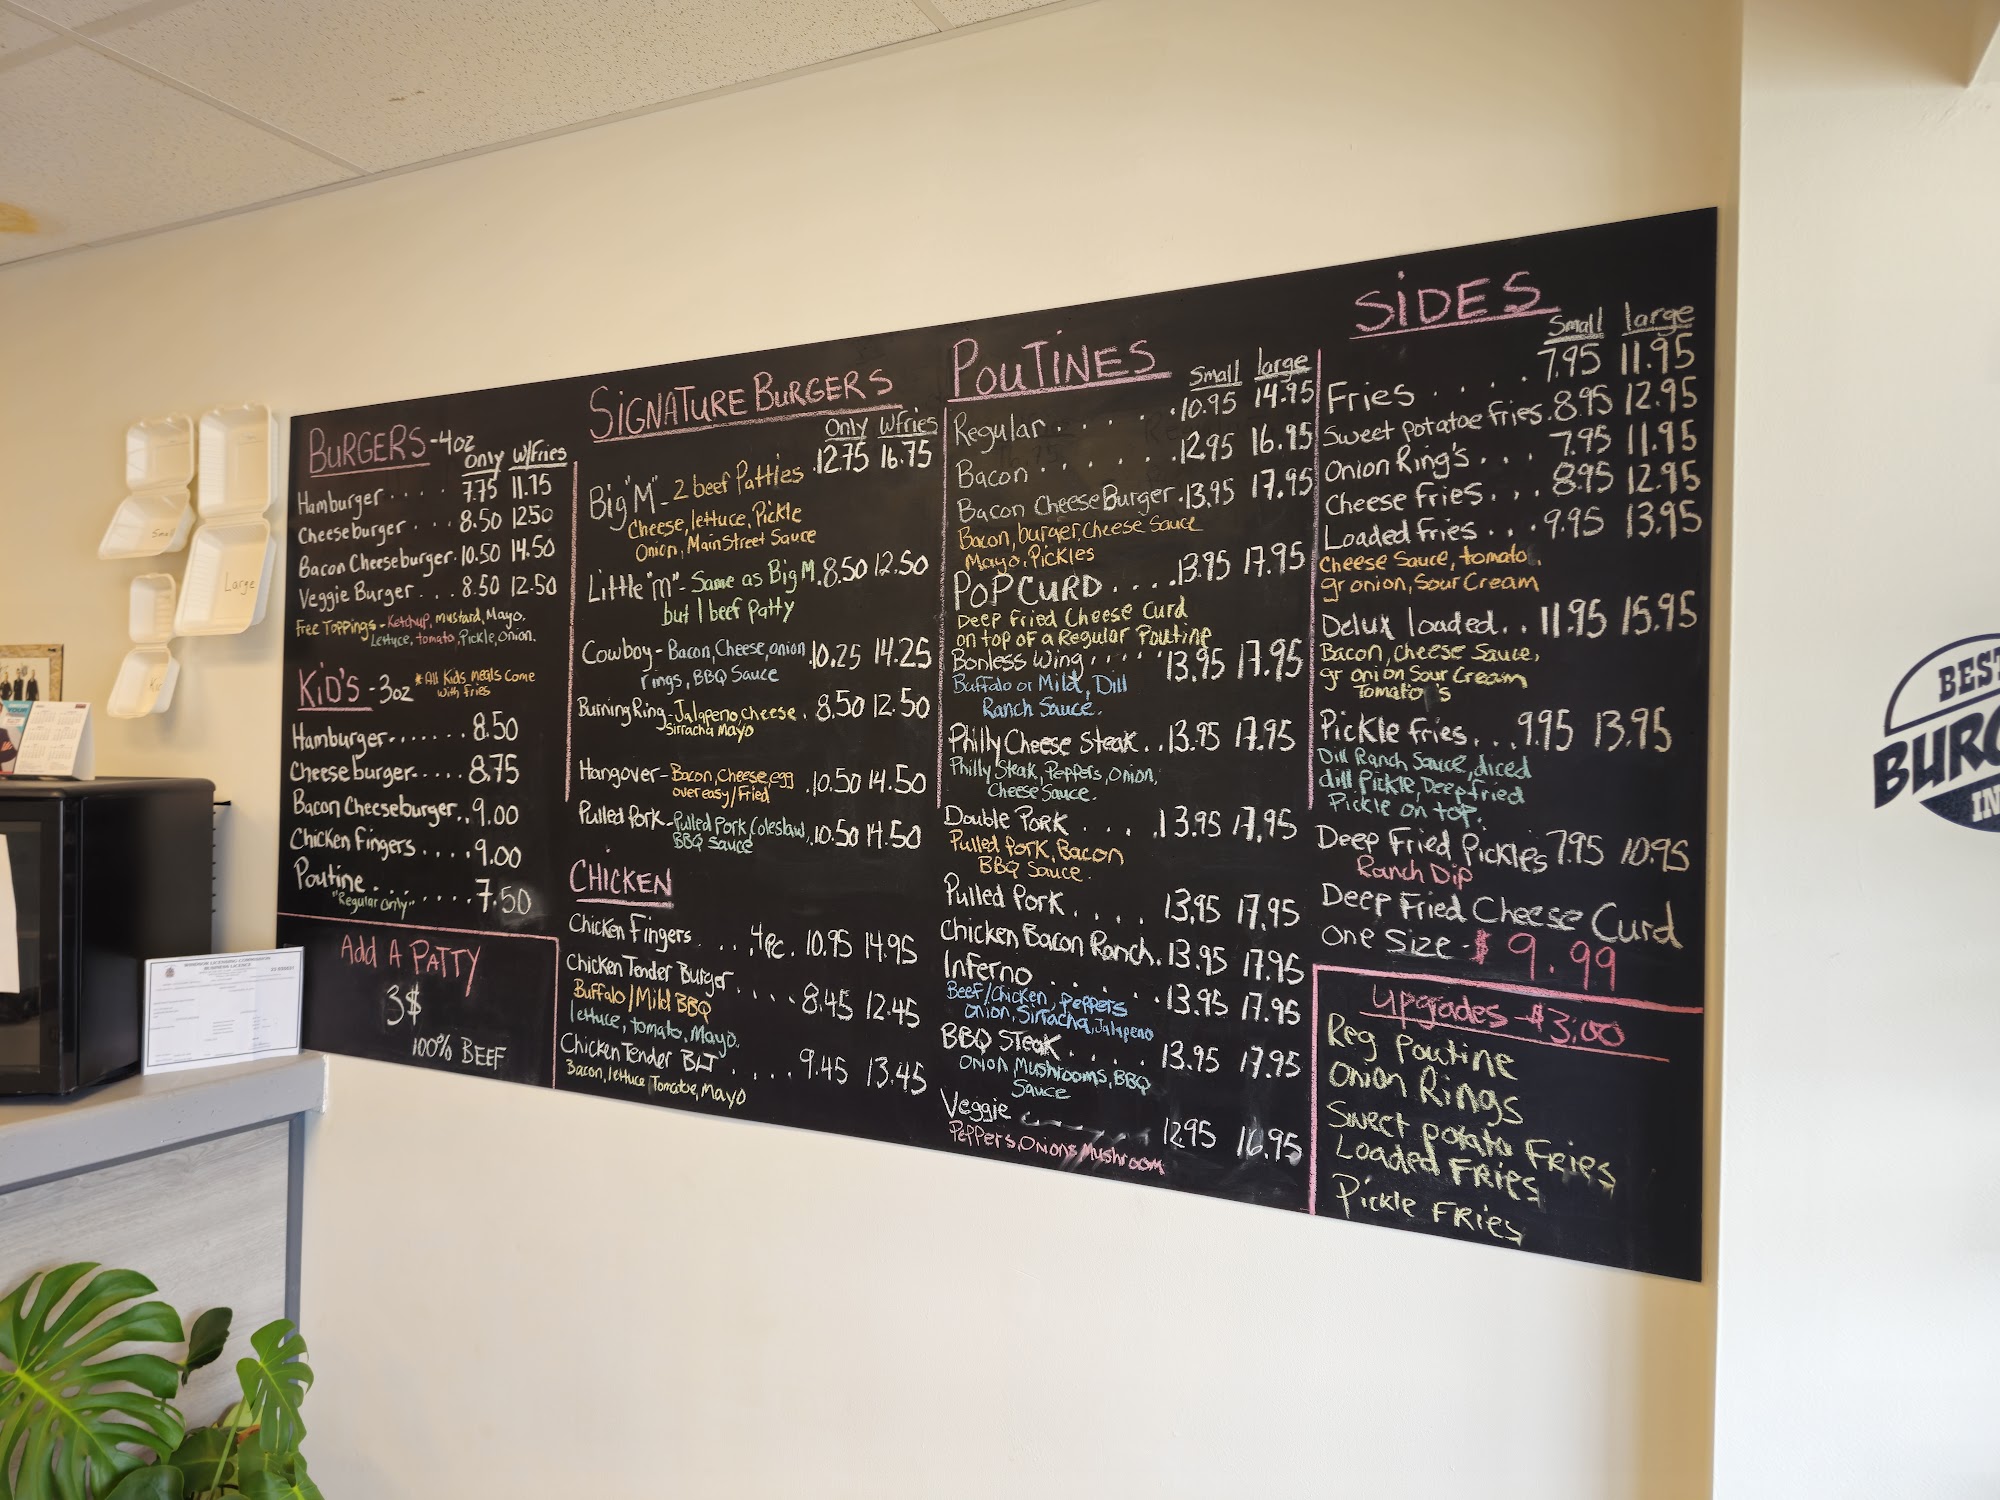 BURGERS - 4oz
Only W/Fries
Hamburger .... 7.75 11.75
Cheeseburger ... 8.50 12.50
Bacon Cheeseburger. 10.50 14.50
Veggie Burger ... 8.50 12.50
Free Toppings - Ketchup, mustard, Mayo,
Lettuce, tomato, Pickle, onion.
KiD'S - 3oz
* All Kids meals Come
with fries
Hamburger....... 8.50
Cheeseburger..... 8.75
Bacon Cheeseburger.. 9.00
Chicken Fingers .... 9.00
Poutine......... 7.50
"Regular only"
Add A PATTY
3$
100% BEEF
SiGNATURE BURGERS
Only W/Fries
Big "M" - 2 beef Patties .12.75 16.75
Cheese, lettuce, Pickle
Onion, Main Street Sauce
Little "m" - Same as Big M. 8.50 12.50
but 1 beef patty
Cowboy - Bacon, Cheese, onion 10.25 14.25
rings, BBQ Sauce
Burning Ring - Jalapeno, cheese. 8.50 12.50
Sirracha Mayo
Hangover - Bacon, Cheese, egg .10.50 14.50
over easy/Fried
Pulled Pork - Pulled Pork, Coleslaw, 10.50 14.50
BBQ Sauce
CHICKEN
Chicken Fingers ....4pc. 10.95 14.95
Chicken Tender Burger .... 8.45 12.45
Buffalo/Mild BBQ
lettuce, tomato, Mayo.
Chicken Tender BLT .... 9.45 13.45
Bacon, lettuce, Tomatoe, Mayo
POUTINES
Small large
Regular ..... 10.95 14.95
Bacon ...... 12.95 16.95
Bacon Cheese Burger . 13.95 17.95
Bacon, burger, cheese Sauce
Mayo, Pickles
POP CURD .... 13.95 17.95
Deep Fried Cheese Curd
on top of a Regular Poutine
Bonless Wing ..... 13.95 17.95
Buffalo or Mild, Dill
Ranch Sauce.
Philly Cheese Steak .. 13.95 17.95
Philly Steak, Peppers, Onion,
Cheese Sauce.
Double Pork .... 13.95 17.95
Pulled Pork, Bacon
BBQ Sauce.
Pulled Pork .... 13.95 17.95
Chicken Bacon Ranch. 13.95 17.95
Inferno ...... 13.95 17.95
Beef/Chicken, peppers
onion, Sirracha, Jalapeno
BBQ Steak ..... 13.95 17.95
Onion, Mushrooms, BBQ
Sauce
Veggie 12.95 16.95
Peppers, Onions Mushroom
SiDES
Small large
Fries ..... 7.95 11.95
Sweet Potatoe Fries. 8.95 12.95
Onion Ring's ... 7.95 11.95
Cheese Fries ... 8.95 12.95
Loaded Fries .. 9.95 13.95
Cheese Sauce, tomato,
gr onion, Sour Cream
Delux loaded .. 11.95 15.95
Bacon, cheese Sauce,
gr onion Sour Cream
Tomato's
Pickle Fries ... 9.95 13.95
Dill Ranch Sauce, diced
dill Pickle, Deep fried
Pickle on top.
Deep Fried Pickles 7.95 10.95
Ranch Dip
Deep Fried Cheese Curd
One Size - $ 9.99
Upgrades - $3.00
Reg Poutine
Onion Rings
Sweet Potato Fries
Loaded FRies
Pickle FRies
Small
Large
WINDSOR LICENSING COMMISSION
BUSINESS LICENCE
BEST
BURG
IN